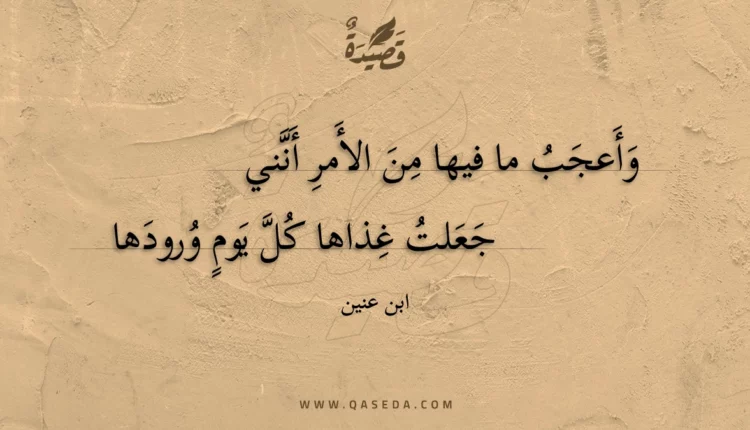 قَصِيدَةٌ
وَأَعجَبُ ما فيها مِنَ الأَمرِ أَنَّني
جَعَلتُ غِذاها كُلَّ يَومٍ وُرودَها
ابن عنين
WWW.QASEDA.COM